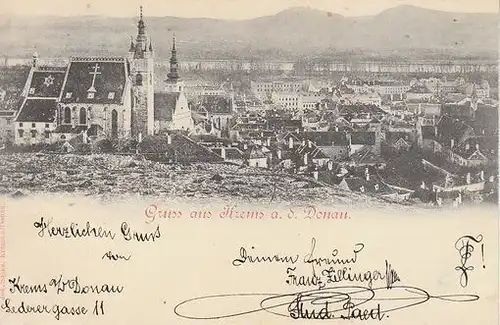 Gruss aus Krems a. d. Donau.
Herzlichen Gruß
von
Krems a/ Donau
Lederergasse 11
Deinem Freund
Franz Zillinger
Stud.